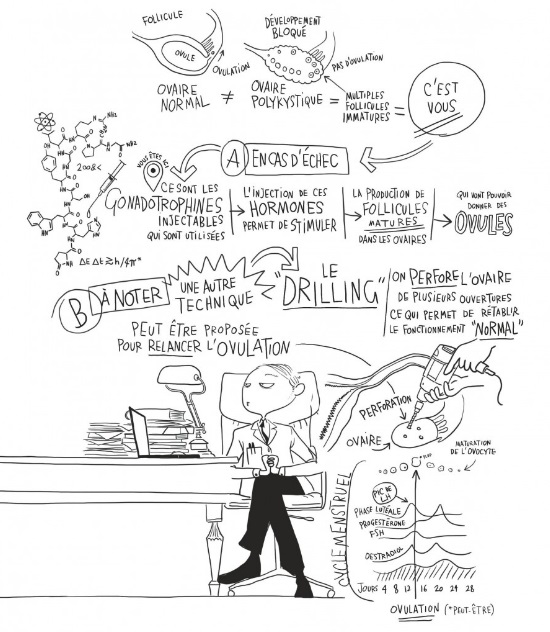 FOLLICULE
OVULE
OVULATION
OVAIRE
NORMAL
≠
DÉVELOPPEMENT
BLOQUÉ
PAS D'OVULATION
OVAIRE
POLYKYSTIQUE
=
MULTIPLES
FOLLICULES
IMMATURES
=
C'EST
VOUS
A EN CAS D'ÉCHEC
VOUS ÊTES ICI
NH₂
2008<
ΔE Δt ≥ h/4π*
CE SONT LES
GONADOTROPHINES
INJECTABLES
QUI SONT UTILISÉES
L'INJECTION DE CES
HORMONES
PERMET DE STIMULER
LA PRODUCTION DE
FOLLICULES
MATURES
DANS LES OVAIRES
QUI VONT POUVOIR
DONNER DES
OVULES
B À NOTER
UNE AUTRE
TECHNIQUE
LE
"DRILLING"
ON PERFORE L'OVAIRE
DE PLUSIEURS OUVERTURES
CE QUI PERMET DE RÉTABLIR
LE FONCTIONNEMENT "NORMAL"
PEUT ÊTRE PROPOSÉE
POUR RELANCER L'OVULATION
PERFORATION
OVAIRE
MATURATION
DE L'OVOCYTE
CYCLE MENSTRUEL
PIC DE
LH
PHASE LUTÉALE
PROGESTÉRONE
FSH
OESTRADIOL
JOURS 4 8 12 16 20 24 28
OVULATION (*PEUT-ÊTRE)